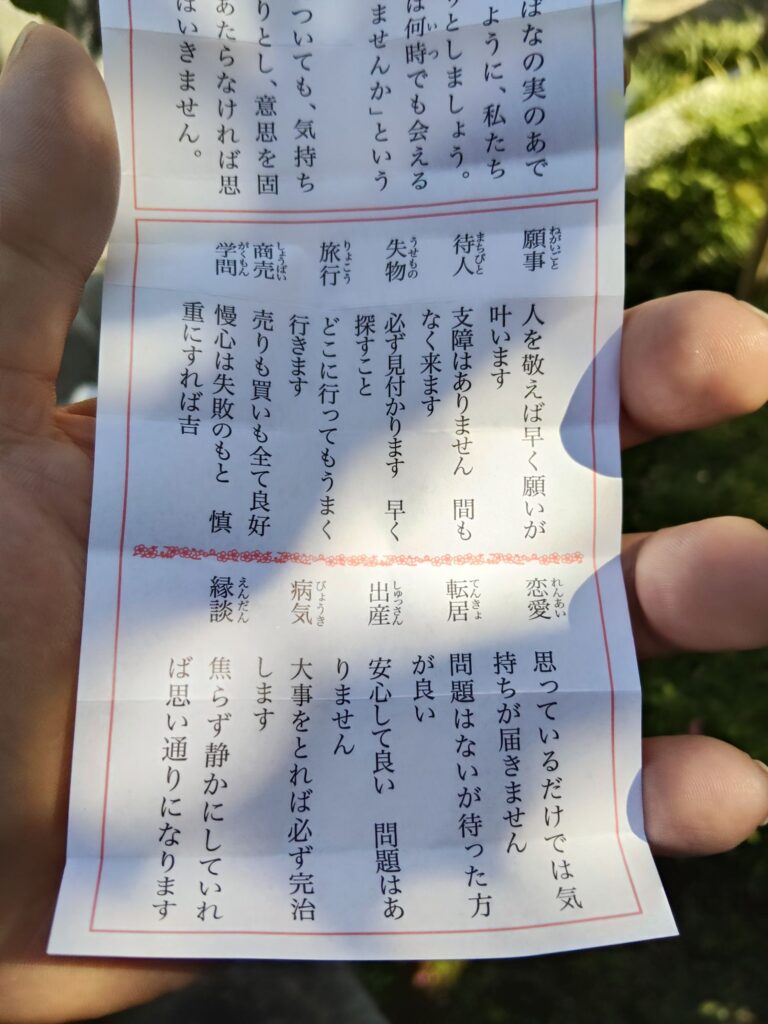 ばなの実のあで
ように、私たち
りとしましょう。
は何時でも会える
いつ
ませんか」という
ついても、気持ち
りとし、意思を固
あたらなければ思
はいきません。
願事
ねがいごと
人を敬えば早く願いが
叶います
待人
まちびと
支障はありません　間も
なく来ます
失物
うせもの
必ず見付かります　早く
探すこと
旅行
りょこう
どこに行ってもうまく
行きます
商売
しょうばい
売りも買いも全て良好
学問
がくもん
慢心は失敗のもと　慎
重にすれば吉
恋愛
れんあい
思っているだけでは気
持ちが届きません
転居
てんきょ
問題はないが待った方
が良い
出産
しゅっさん
安心して良い　問題はあ
りません
病気
びょうき
大事をとれば必ず完治
します
縁談
えんだん
焦らず静かにしていれ
ば思い通りになります